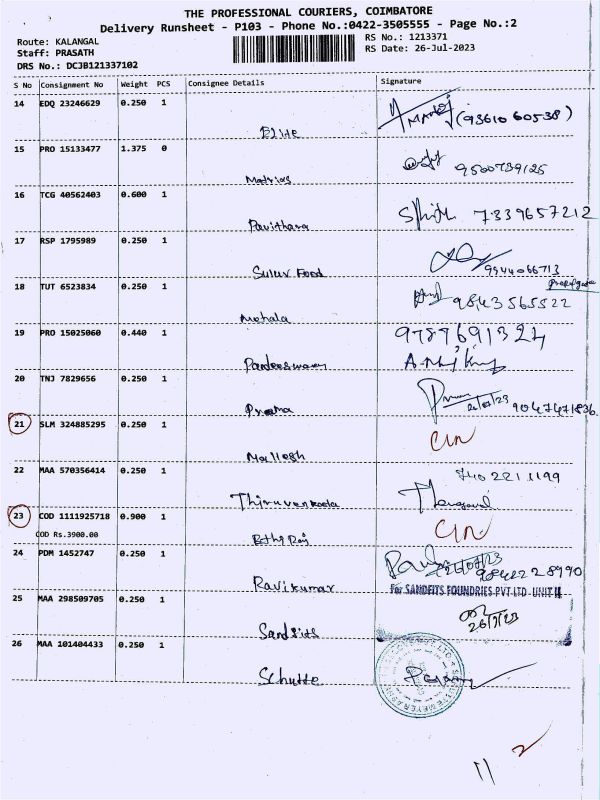 THE PROFESSIONAL COURIERS, COIMBATORE
Delivery Runsheet - P103 - Phone No.:0422-3505555 - Page No.:2
Route: KALANGAL
Staff: PRASATH
DRS No.: DCJB121337102
RS No.: 1213371
RS Date: 26-Jul-2023
S No Consignment No Weight PCS Consignee Details Signature
14 EDQ 23246629 0.250 1
Elite (9361060538)
15 PRO 15133477 1.375 0
Matrias 9500739125
16 TCG 40562403 0.600 1
Pavithara 7339657212
17 RSP 1795989 0.250 1
Sulur Food 9944066713
18 TUT 6523834 0.250 1
Mohala 9843565522
19 PRO 15025060 0.440 1 9789691324
Pandeeswary
20 TNJ 7829656 0.250 1
Prema 26/07/23 9047471836
21 SLM 324885295 0.250 1
Mallesh
22 MAA 570356414 0.250 1 740 2211199
Thiruvenkada
23 COD 1111925718 0.900 1
COD Rs.3900.00
Bethi Raj
24 PDM 1452747 0.250 1
Ravikumar 9842228990
For SANDFITS FOUNDRIES PVT LTD - UNIT II
25 MAA 298509705 0.250 1
Sandfits 26/7/23
26 MAA 101404433 0.250 1
Schutte
11 2